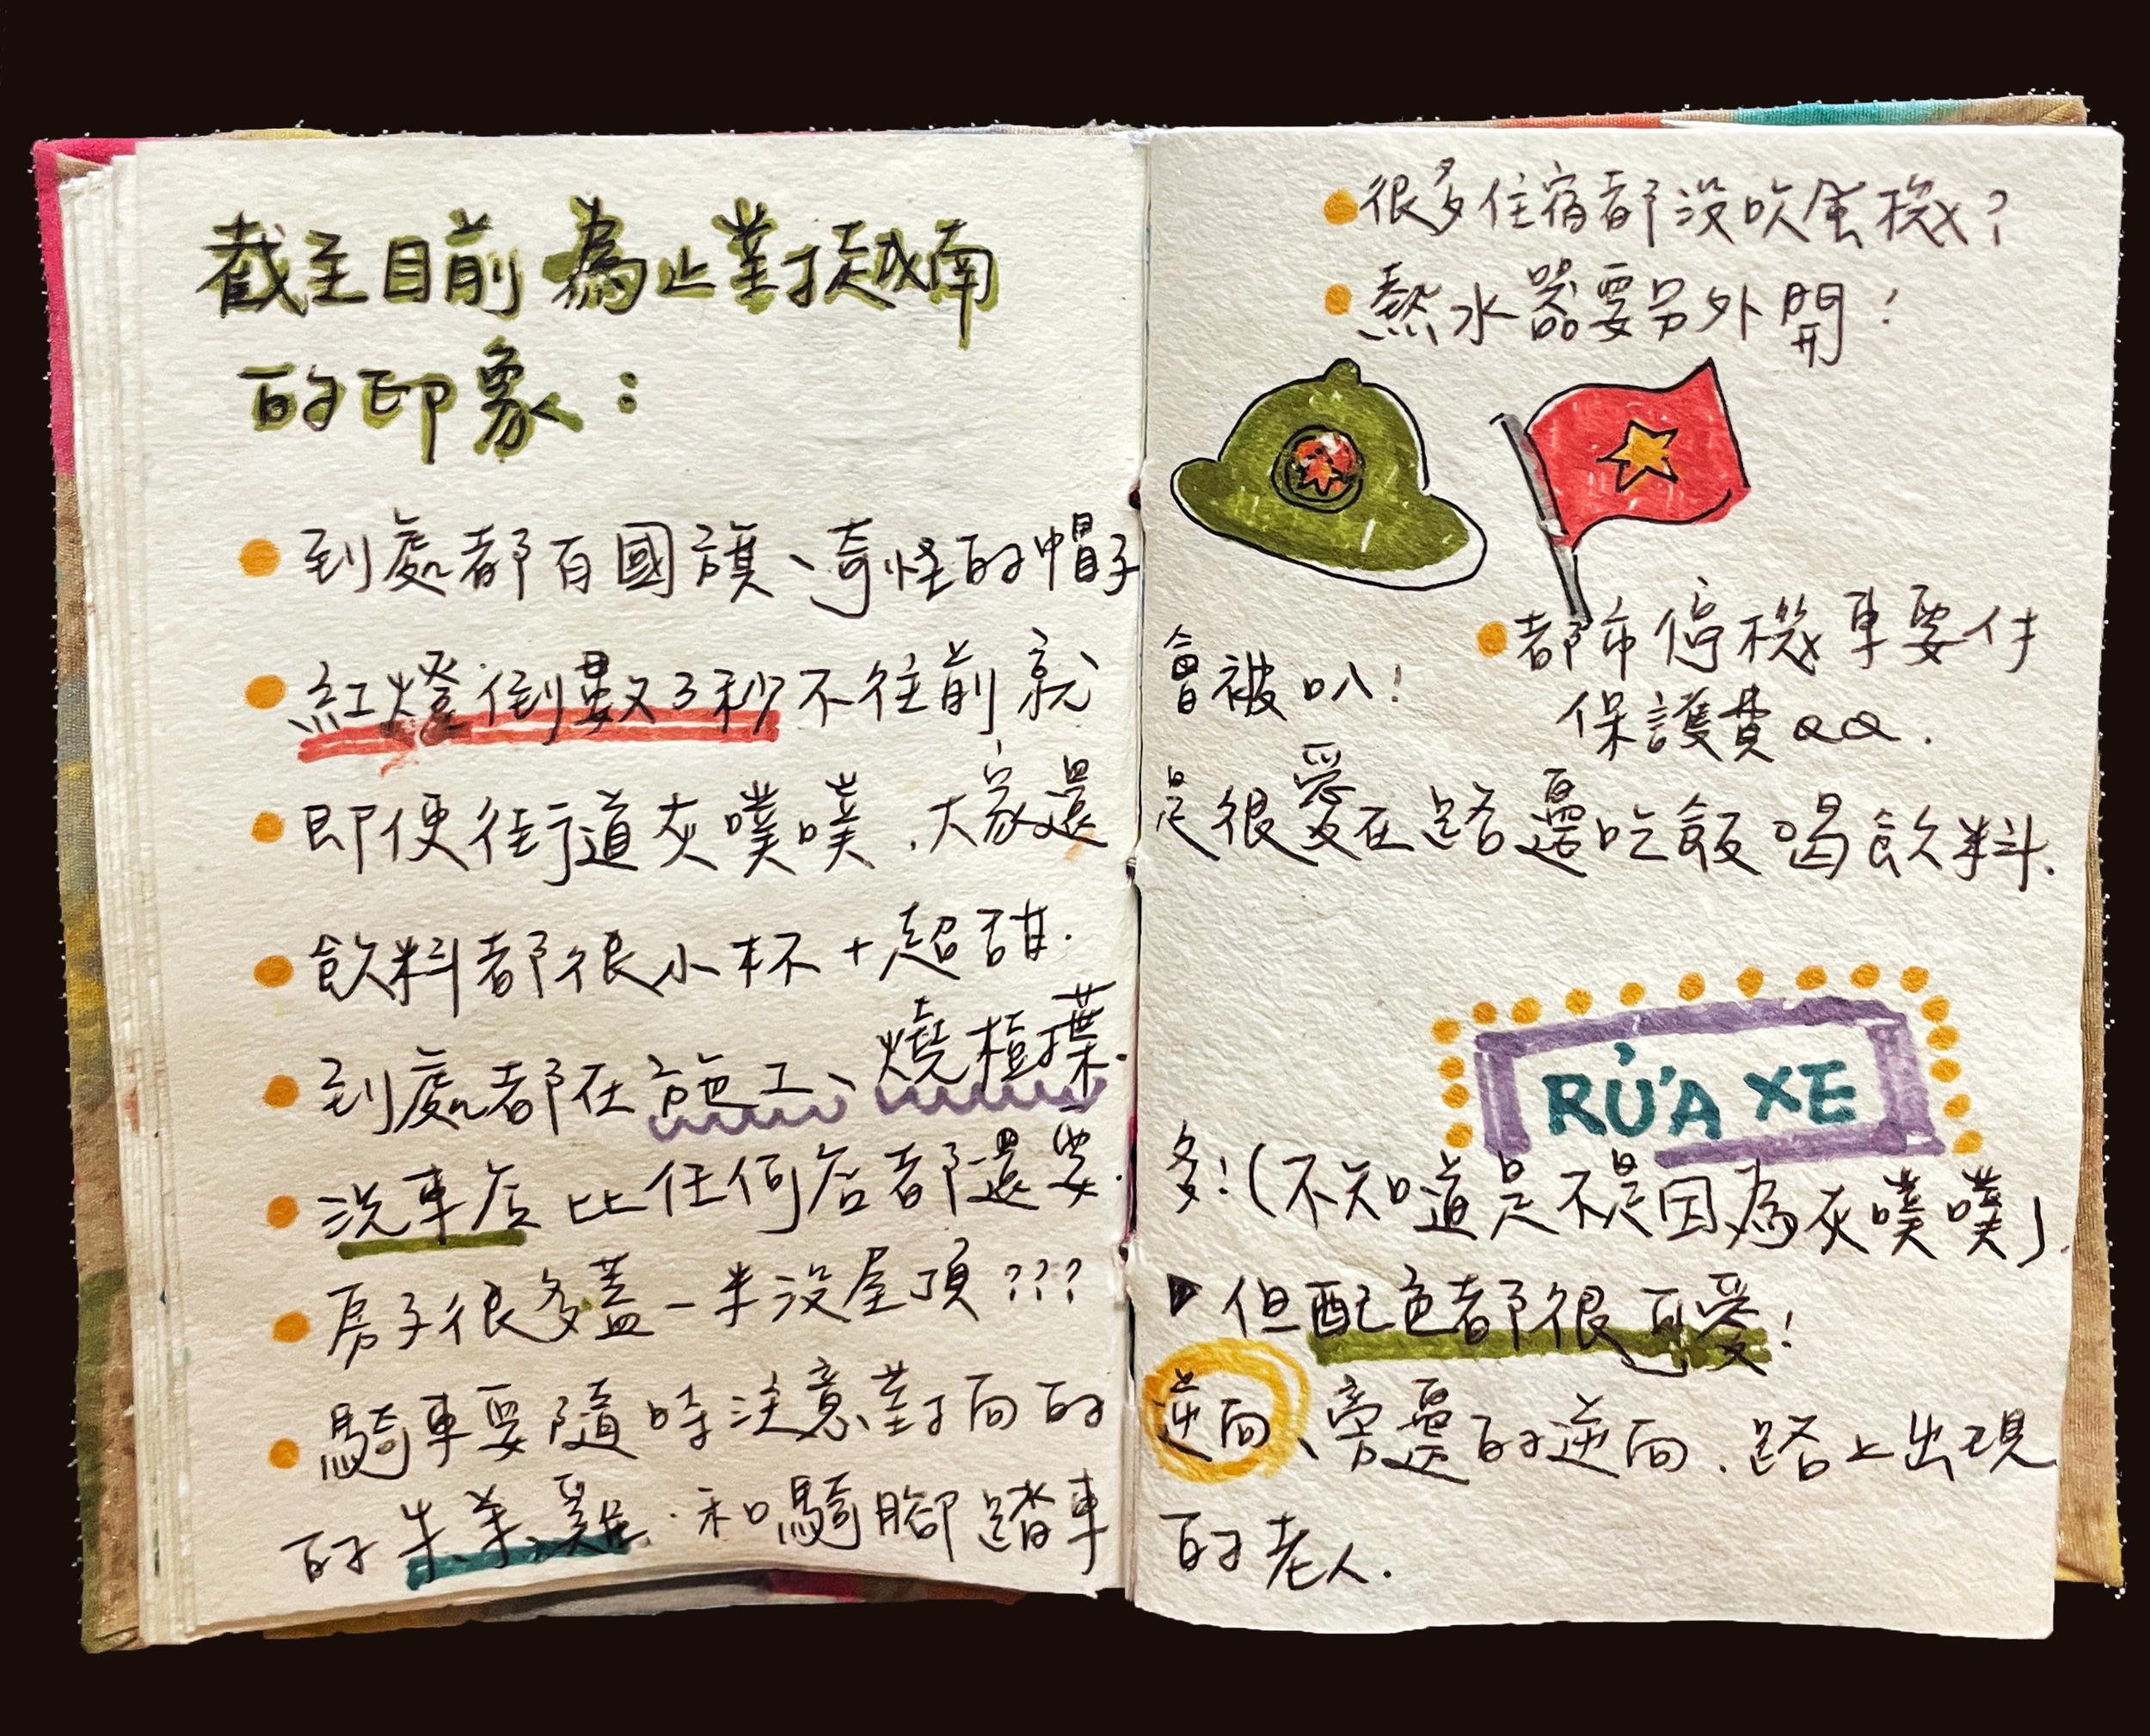 截至目前為止對越南
的印象：
到處都有國旗、奇怪的帽子
紅燈倒數3秒不往前就
會被叭！
即便街道灰噗噗，大家還
是很愛在路邊吃飯喝飲料.
飲料都很小杯+超甜.
到處都在施工、燒植葉.
洗車店比任何店都還要
多！(不知道是不是因為灰噗噗)
▶但配色都很可愛！
房子很多蓋一半沒屋頂???
騎車要隨時注意對向的
逆向、旁邊的逆向.路上出現
的牛、羊、雞.和騎腳踏車
的老人.
很多住宿都沒吹風機？
熱水器要另外開！
都市停機車要付
保護費QQ.
RỬA XE